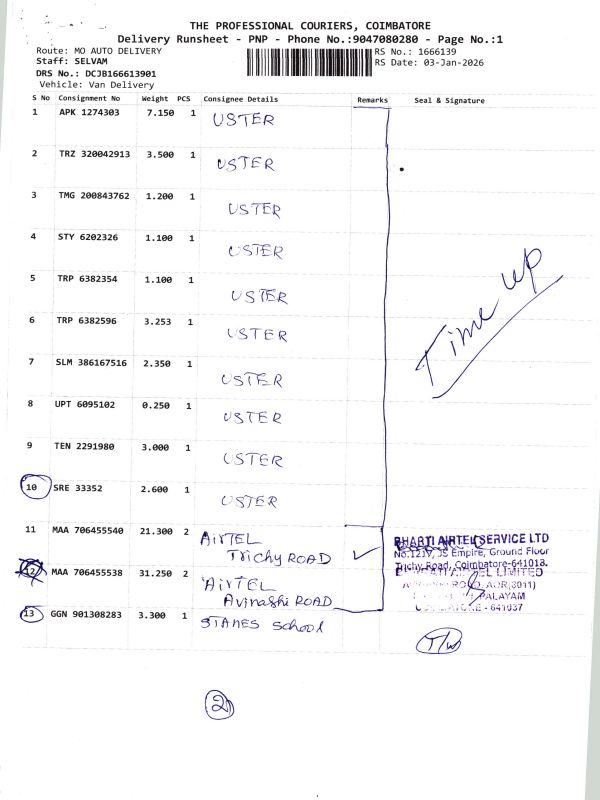 THE PROFESSIONAL COURIERS, COIMBATORE
Delivery Runsheet - PNP - Phone No.:9047080280 - Page No.:1
Route: MO AUTO DELIVERY
Staff: SELVAM
DRS No.: DCJB166613901
Vehicle: Van Delivery
RS No.: 1666139
RS Date: 03-Jan-2026
S No Consignment No Weight PCS Consignee Details Remarks Seal & Signature
1 APK 1274303 7.150 1 USTER
2 TRZ 320042913 3.500 1 USTER
3 TMG 200843762 1.200 1 USTER
4 STY 6202326 1.100 1 USTER
5 TRP 6382354 1.100 1 USTER
6 TRP 6382596 3.253 1 USTER
7 SLM 386167516 2.350 1 USTER
8 UPT 6095102 0.250 1 USTER
9 TEN 2291980 3.000 1 USTER
10 SRE 33352 2.600 1 USTER
Time up
11 MAA 706455540 21.300 2 AIRTEL
Trichy ROAD
BHARTI AIRTEL SERVICE LTD
No.1219, JS Empire, Ground Floor
Trichy Road, Coimbatore-641018.
12 MAA 706455538 31.250 2 AIRTEL
Avinashi ROAD
LIMITED
PALAYAM
- 641037
13 GGN 901308283 3.300 1 STANES School
T/W
2